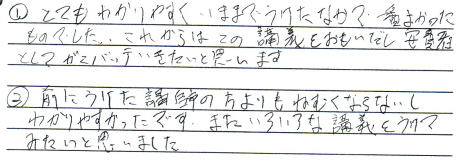 ① とてもわかりやすく いままでうけたなかで一番よかった
ものでした。これからはこの講義をおもいだし安責者
としてガンバッテいきたいと思います
② 前にうけた講師の方よりもねむくならないし
わかりやすかったです。またいろいろな講義をうけて
みたいと思いました